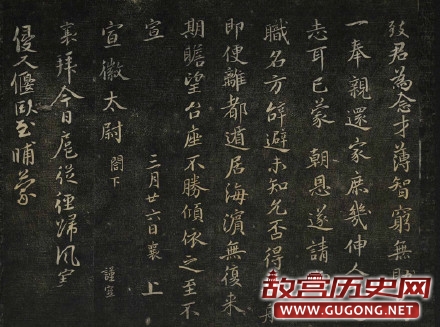 致君為念才薄智窮無
一奉親還家庶幾伸
志耳已蒙 朝恩遂請
職名方辭避未知允否得
即便離都遁居海濱無復来
期瞻望台座不勝傾依之至不
宣 三月廿六日襄 上
宣徽太尉 閤下 謹空
襄拜今日扈從徑歸風寒
侵入偃臥至晡蒙
故宫历史网
WWW.GUGONG.NET